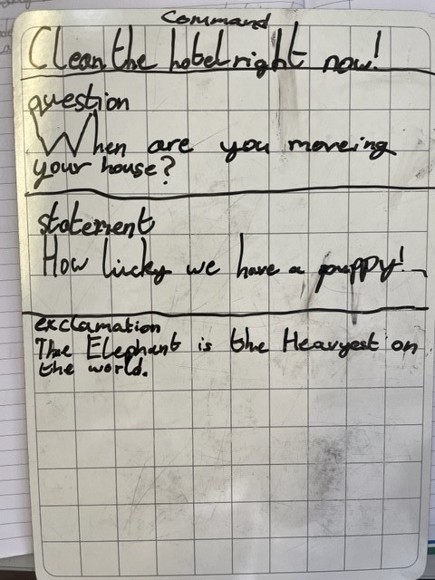 Command
Clean the hotel right now!
question
When are you moveing
your house?
statement
How lucky we have a puppy!
exclamation
The Elephant is the Heavyest on
the world.